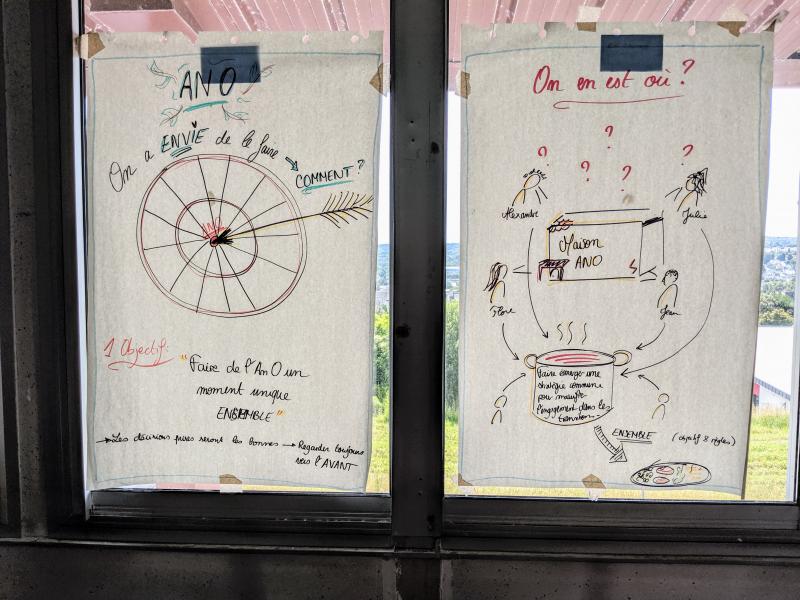 ANO
On a ENVIE de le faire
COMMENT ?
1 Objectif:
"Faire de l'AnO un
moment unique
ENSEMBLE"
Les décisions prises seront les bonnes → Regarder toujours
vers l'AVANT
On en est où ?
? ? ? ? ?
Alexandre
Julie
Maison
ANO
Flore
Jean
Faire émerger une
stratégie commune
pour
l'engagement dans les
transitions
ENSEMBLE (objectif 8 règles)